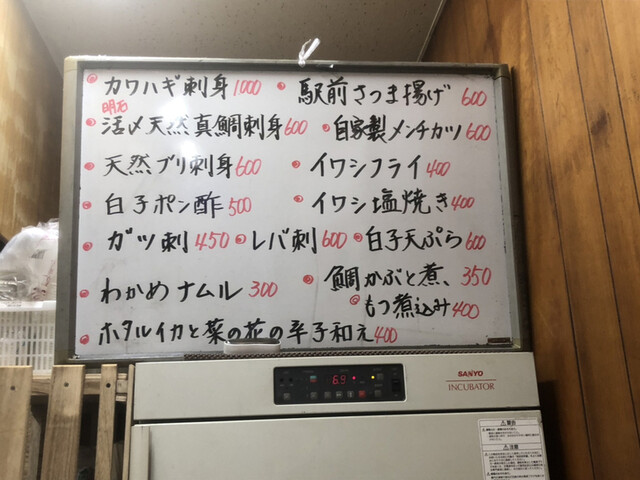 カワハギ刺身 1000 駅前さつま揚げ 600
明石
活〆天然真鯛刺身 600 自家製メンチカツ 600
天然ブリ刺身 600 イワシフライ 400
白子ポン酢 500 イワシ塩焼き 400
ガツ刺 450 レバ刺 600 白子天ぷら 600
わかめナムル 300 鯛かぶと煮、350
もつ煮込み 400
ホタルイカと菜の花の辛子和え 400
SANYO
INCUBATOR
6.9
警告
注意